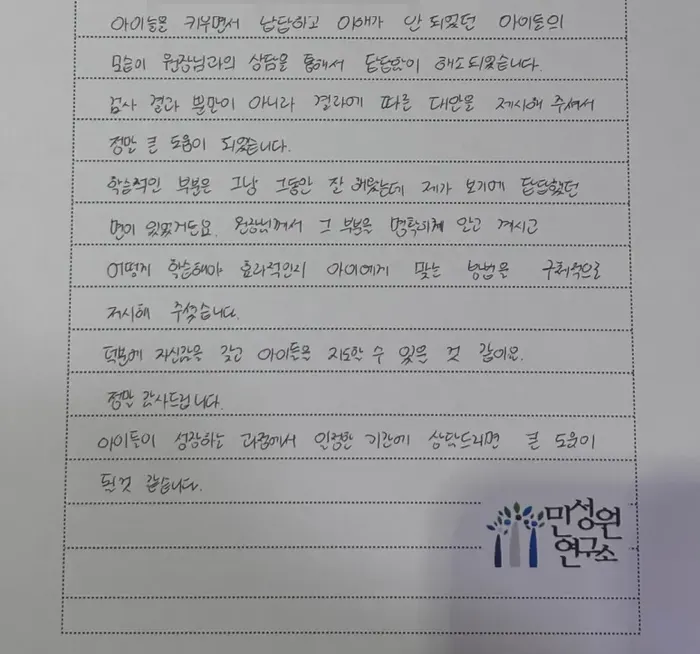 아이들을 키우면서 답답하고 이해가 안 되었던 아이들의
모습이 원장님과의 상담을 통해서 답답함이 해소되었습니다.
검사 결과 뿐만이 아니라 결과에 따른 대안을 제시해 주셔서
정말 큰 도움이 되었습니다.
학습적인 부분은 그냥 그동안 잘 해왔는데 제가 보기에 답답했던
면이 있었거든요. 원장님께서 그 부분을 명확하게 알고 계시고
어떻게 학습해야 효과적인지 아이에게 맞는 방법을 구체적으로
제시해 주셨습니다.
덕분에 자신감을 갖고 아이들을 지도할 수 있을 것 같아요.
정말 감사드립니다.
아이들이 성장하는 과정에서 일정한 기간에 상담드리면 큰 도움이
될것 같습니다.
민성원
연구소